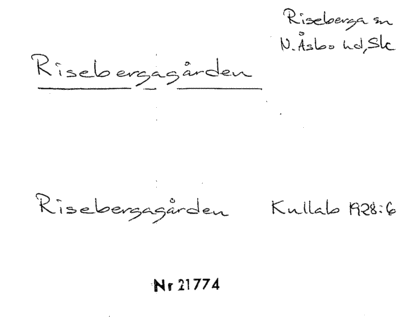 Riseberga sn
N. Åsbo hd, Sk
Risebergagården
Risebergagården Kullab 1928:6
Nr 21774